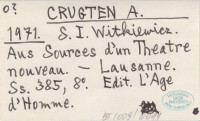 o? CRUGTEN A.
1971. S. I. Witkiewicz.
Aus Sources d'un Theatre
nouveau. – Lausanne.
Ss. 385, 8°. Edit. L'Age
d'Homme.